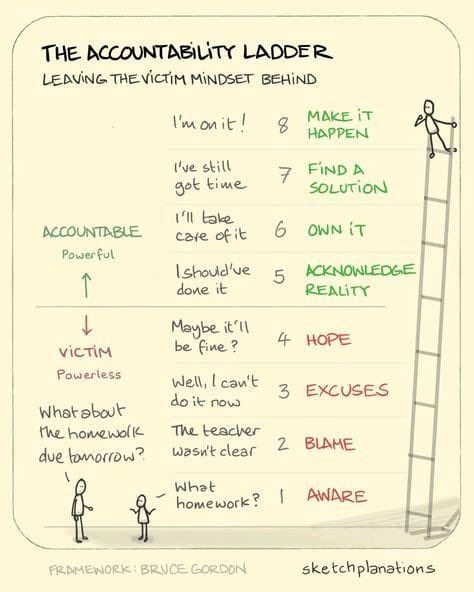 THE ACCOUNTABILITY LADDER
LEAVING THE VICTIM MINDSET BEHIND
I'm on it! 8 MAKE IT
HAPPEN
I've still
got time 7 FIND A
SOLUTION
I'll take
care of it 6 OWN IT
I should've
done it 5 ACKNOWLEDGE
REALITY
ACCOUNTABLE
Powerful
Maybe it'll
be fine? 4 HOPE
VICTIM
Powerless
Well, I can't
do it now 3 EXCUSES
The teacher
wasn't clear 2 BLAME
What about
the homework
due tomorrow?
What
homework? 1 AWARE
FRAMEWORK: BRUCE GORDON
sketchplanations